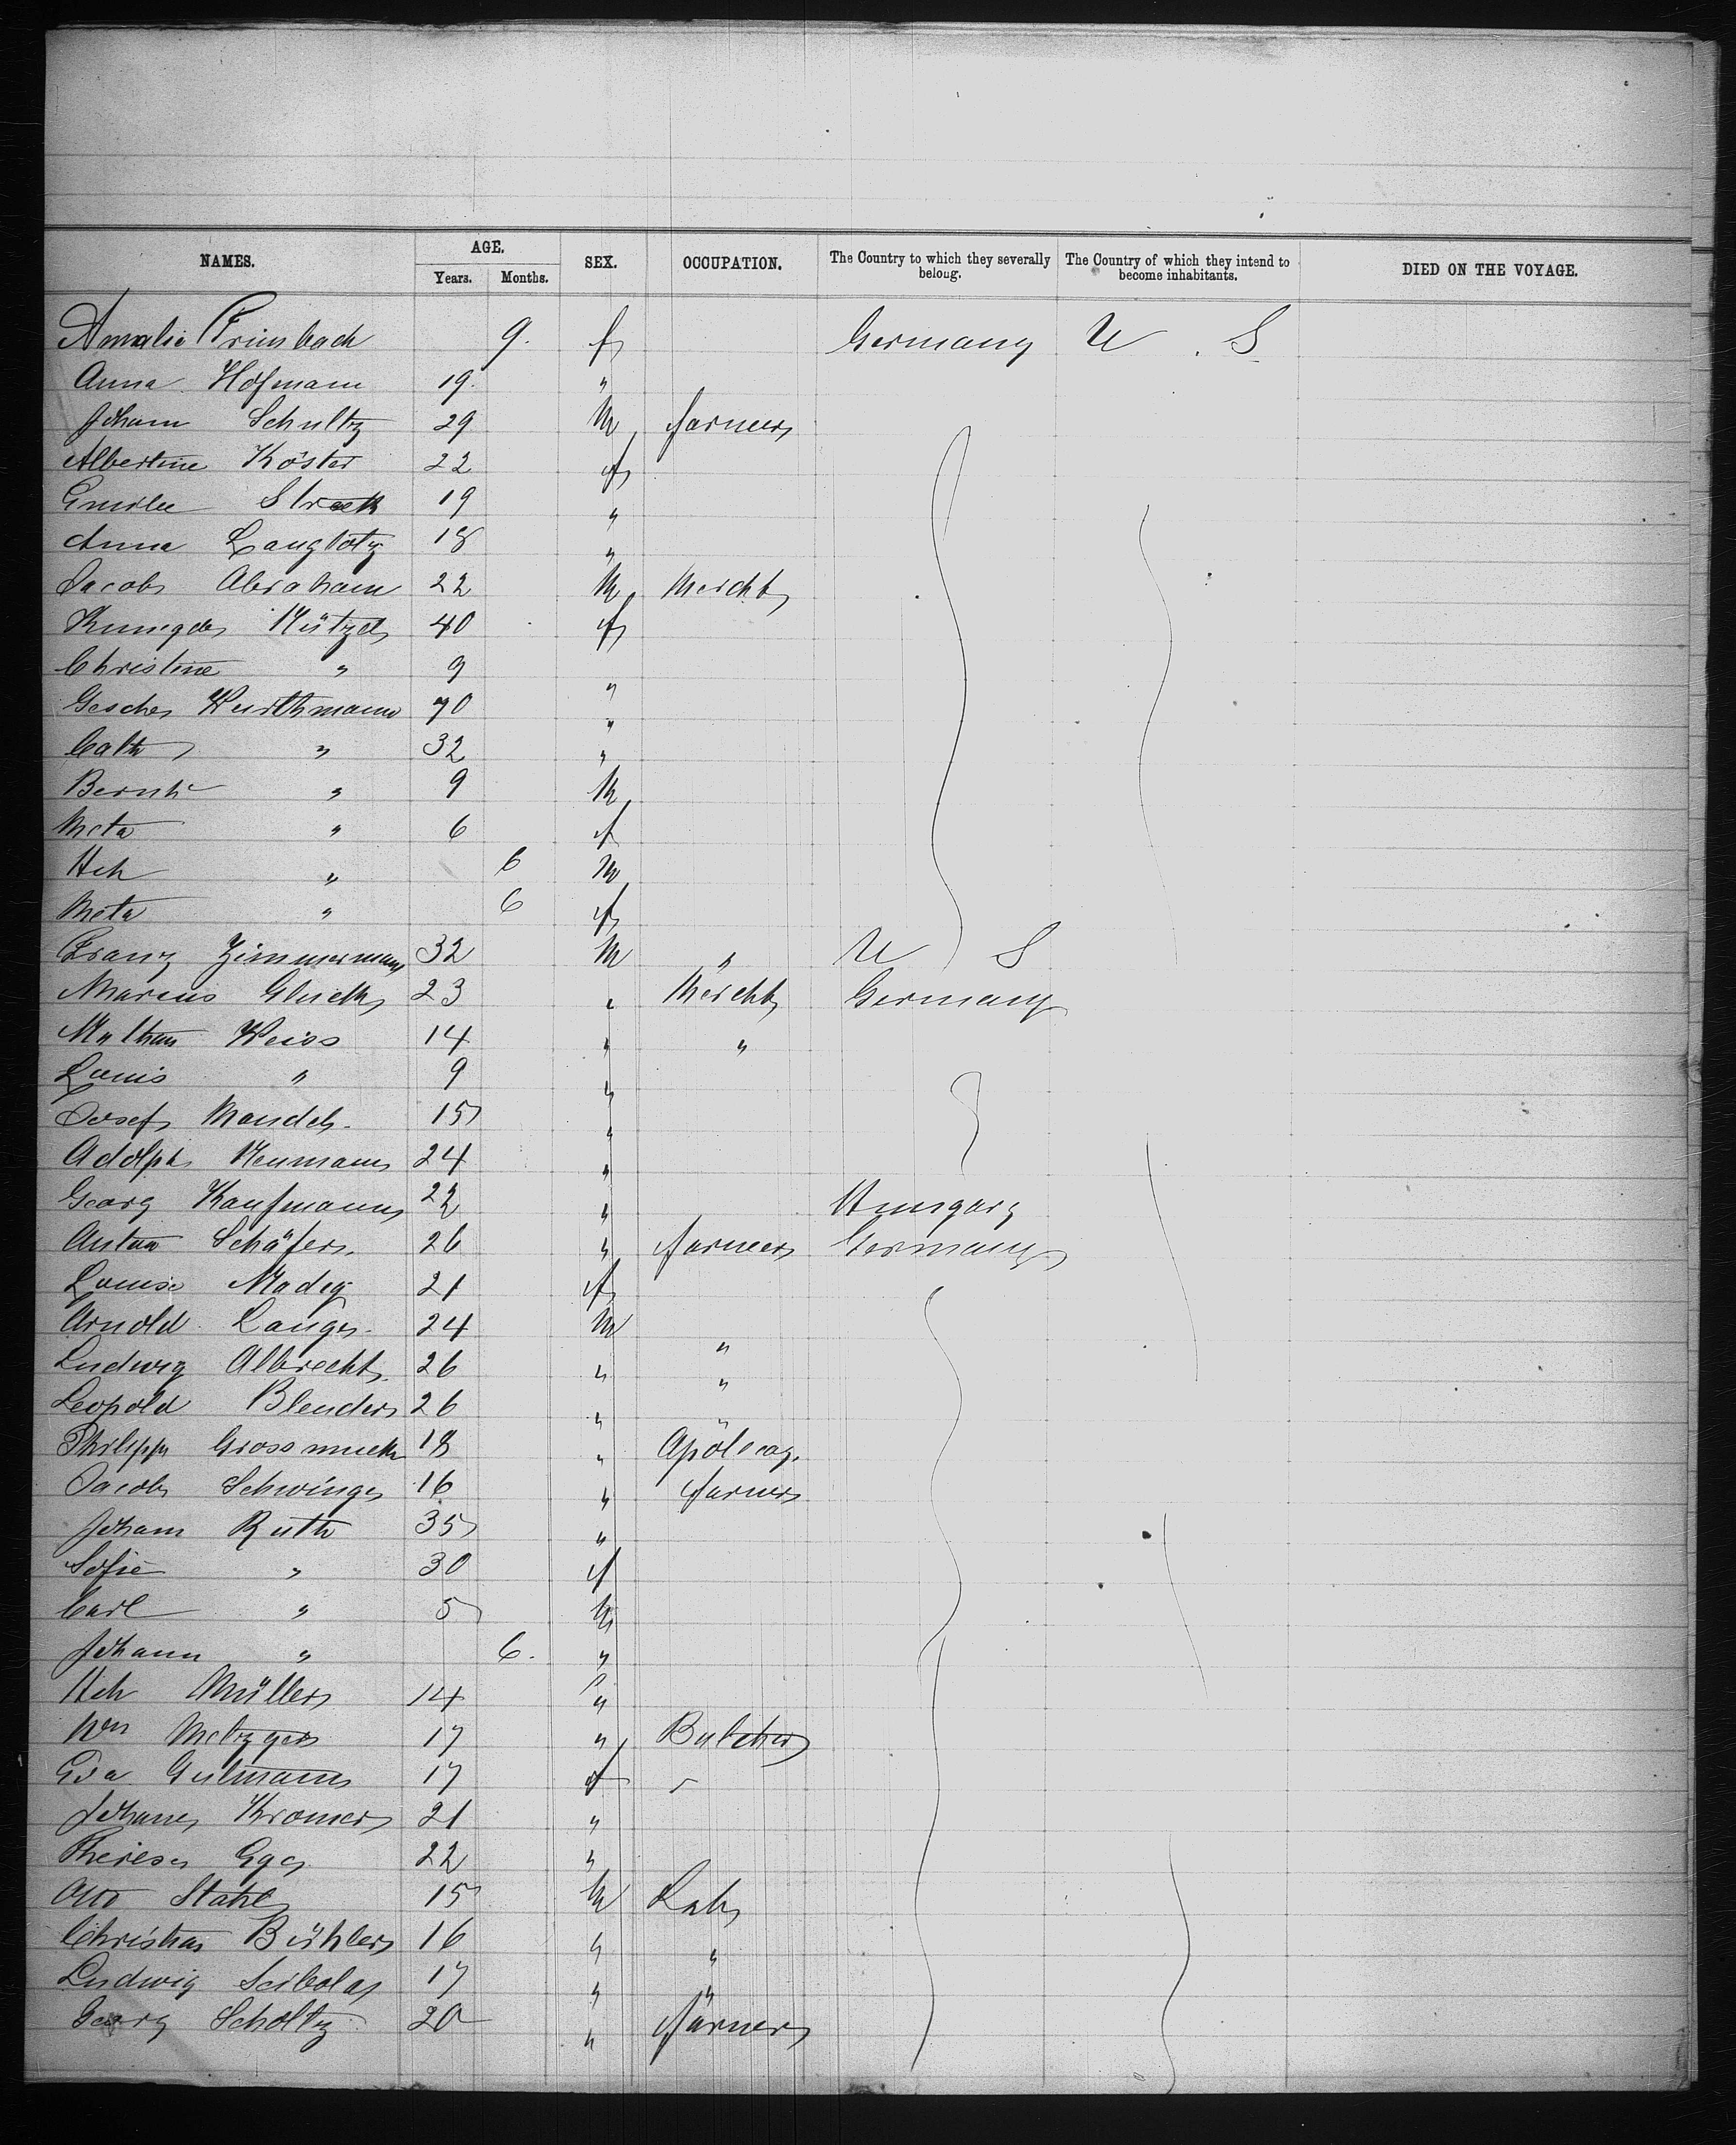 NAMES. AGE. SEX. OCCUPATION. The Country to which they severally belong. The Country of which they intend to become inhabitants. DIED ON THE VOYAGE.
Years. Months.
Amalie 9. f Germany U. S
Anna Hofmann 19. "
Johann Schultz 29 M farmer
Albertine Köster 22 f
Emilie 19 "
Anna Langlotz 18 "
Jacob Abraham 22 M Mercht
40 f
Christine " 9 "
Gesche Wurthmann 70 "
Cath " 32 "
Bernh " 9 M
Meta " 6 f
Hch " 6 M
Meta " 6 f
Franz Zimmermann 32 M " U S
Marcus Gluck 23 " Mercht Germany
Nathan Weiss 14 " "
Louis " 9 "
Josef Mandel. 15 "
Adolph Neumann 24 "
Georg Kaufmann 22 " Hungary
Anton Schäfer. 26 " farmer Germany
Louise Madig 21 f
Arnold Lange. 24 M "
Ludwig Albrecht. 26 " "
Leopold Blender 26 " "
Philipp 18 "
Jacob Schwinge 16 " farmer
Johann Ruth 35 "
Sofie " 30 f
Carl " 5 M
Johann " 6. "
Hch Müller 14 "
Wm Metzger 17 " Butcher
Eva Gutmann 17 f
Kromer 21 "
Therese 22 "
Otto Stahl 15 M Lab
Christian Bühler 16 " "
Ludwig 17 " "
Georg Scholtz 20 " farmer